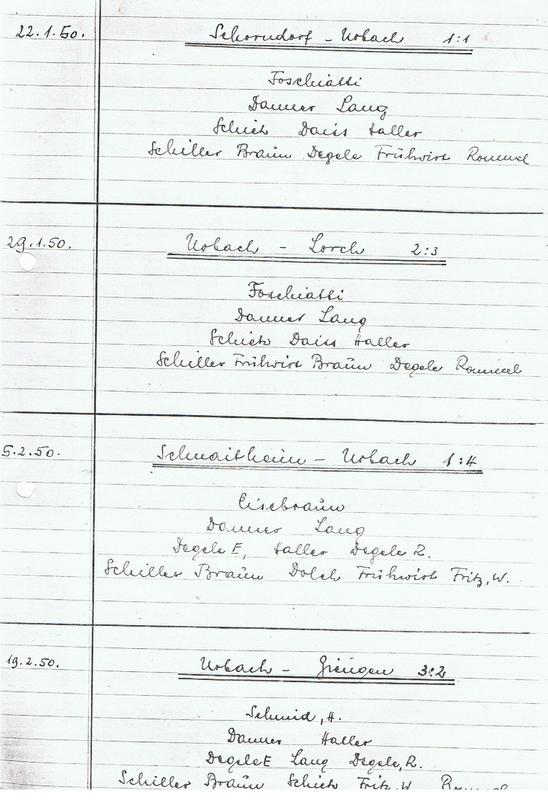 22.1.50. Schorndorf - Urbach 1:1
Foschiatti
Danner Lang
Schieh Daiss Haller
Schiller Braun Degele Frühwirt Rommel
29.1.50. Urbach - Lorch 2:3
Foschiatti
Danner Lang
Schieh Daiss Haller
Schiller Frühwirt Braun Degele Rommel
5.2.50. Schnaitheim - Urbach 1:4
Eisebraun
Danner Lang
Degele E, Haller Degele R.
Schiller Braun Dolch Frühwirt Fritz, W.
19.2.50. Urbach - Giengen 3:2
Schmid, H.
Danner Haller
Degele E Lang Degele, R.
Schiller Braun Schieh Fritz W